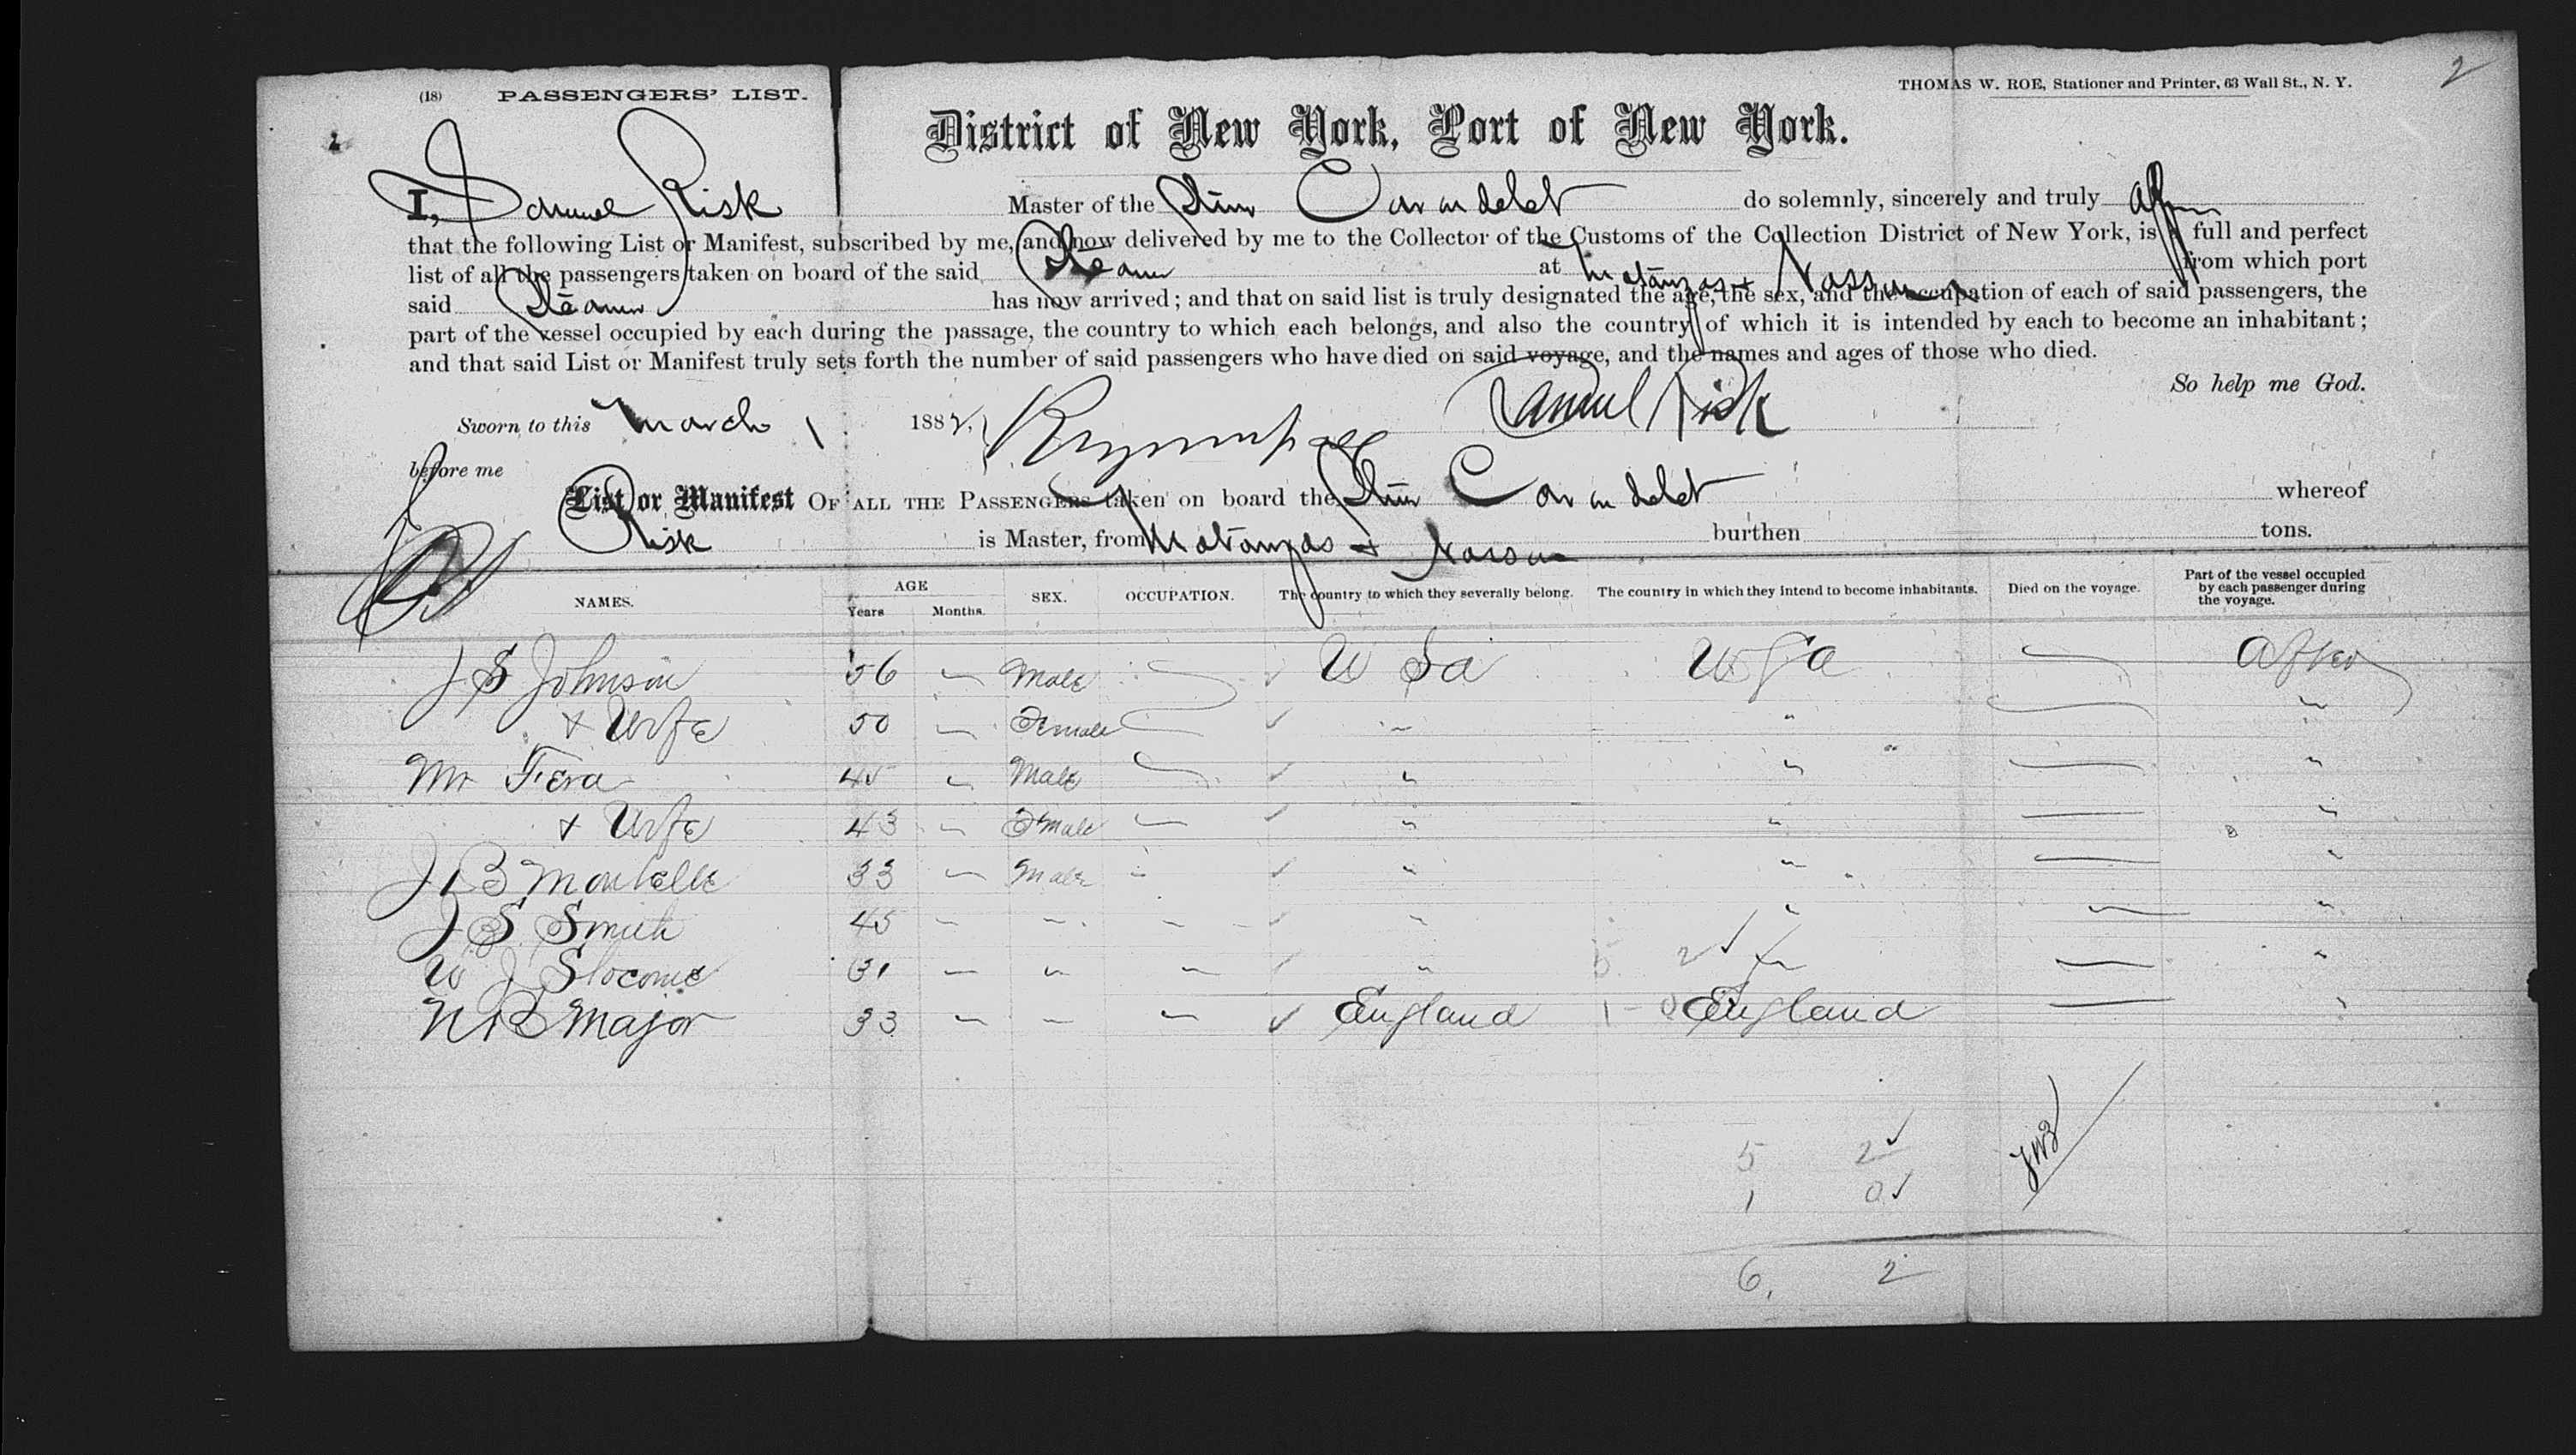 (18) PASSENGERS' LIST.
THOMAS W. ROE, Stationer and Printer, 63 Wall St., N. Y.
2
2
District of New York, Port of New York.
I, Samuel Risk Master of the Stmr Carondelet do solemnly, sincerely and truly affirm
that the following List or Manifest, subscribed by me, and now delivered by me to the Collector of the Customs of the Collection District of New York, is a full and perfect
list of all the passengers taken on board of the said Steamer at Matanzas + Nassau from which port
said Steamer has now arrived; and that on said list is truly designated the age, the sex, and the occupation of each of said passengers, the
part of the vessel occupied by each during the passage, the country to which each belongs, and also the country of which it is intended by each to become an inhabitant;
and that said List or Manifest truly sets forth the number of said passengers who have died on said voyage, and the names and ages of those who died.
So help me God.
Sworn to this March 1 1882, Samuel Risk
before me
List or Manifest OF ALL THE PASSENGERS taken on board the Stmr Carondelet whereof
Risk is Master, from Matanzas + Nassau burthen tons.
NAMES. AGE Years Months. SEX. OCCUPATION. The country to which they severally belong. The country in which they intend to become inhabitants. Died on the voyage. Part of the vessel occupied by each passenger during the voyage.
J S Johnson 56 " Male U Sa U Sa After
+ Wife 50 " Female " " "
Mr Fera 45 " Male " " "
+ Wife 43 " Female " " "
J B Montelle 33 " Male " " "
J S Smith 45 " " " " " "
W J Slocome 31 " " " " 5 2 ✓ " "
N B Major 33 " " " ✓ England 1 - 0 England "
5 2 ✓
1 0 ✓
6, 2